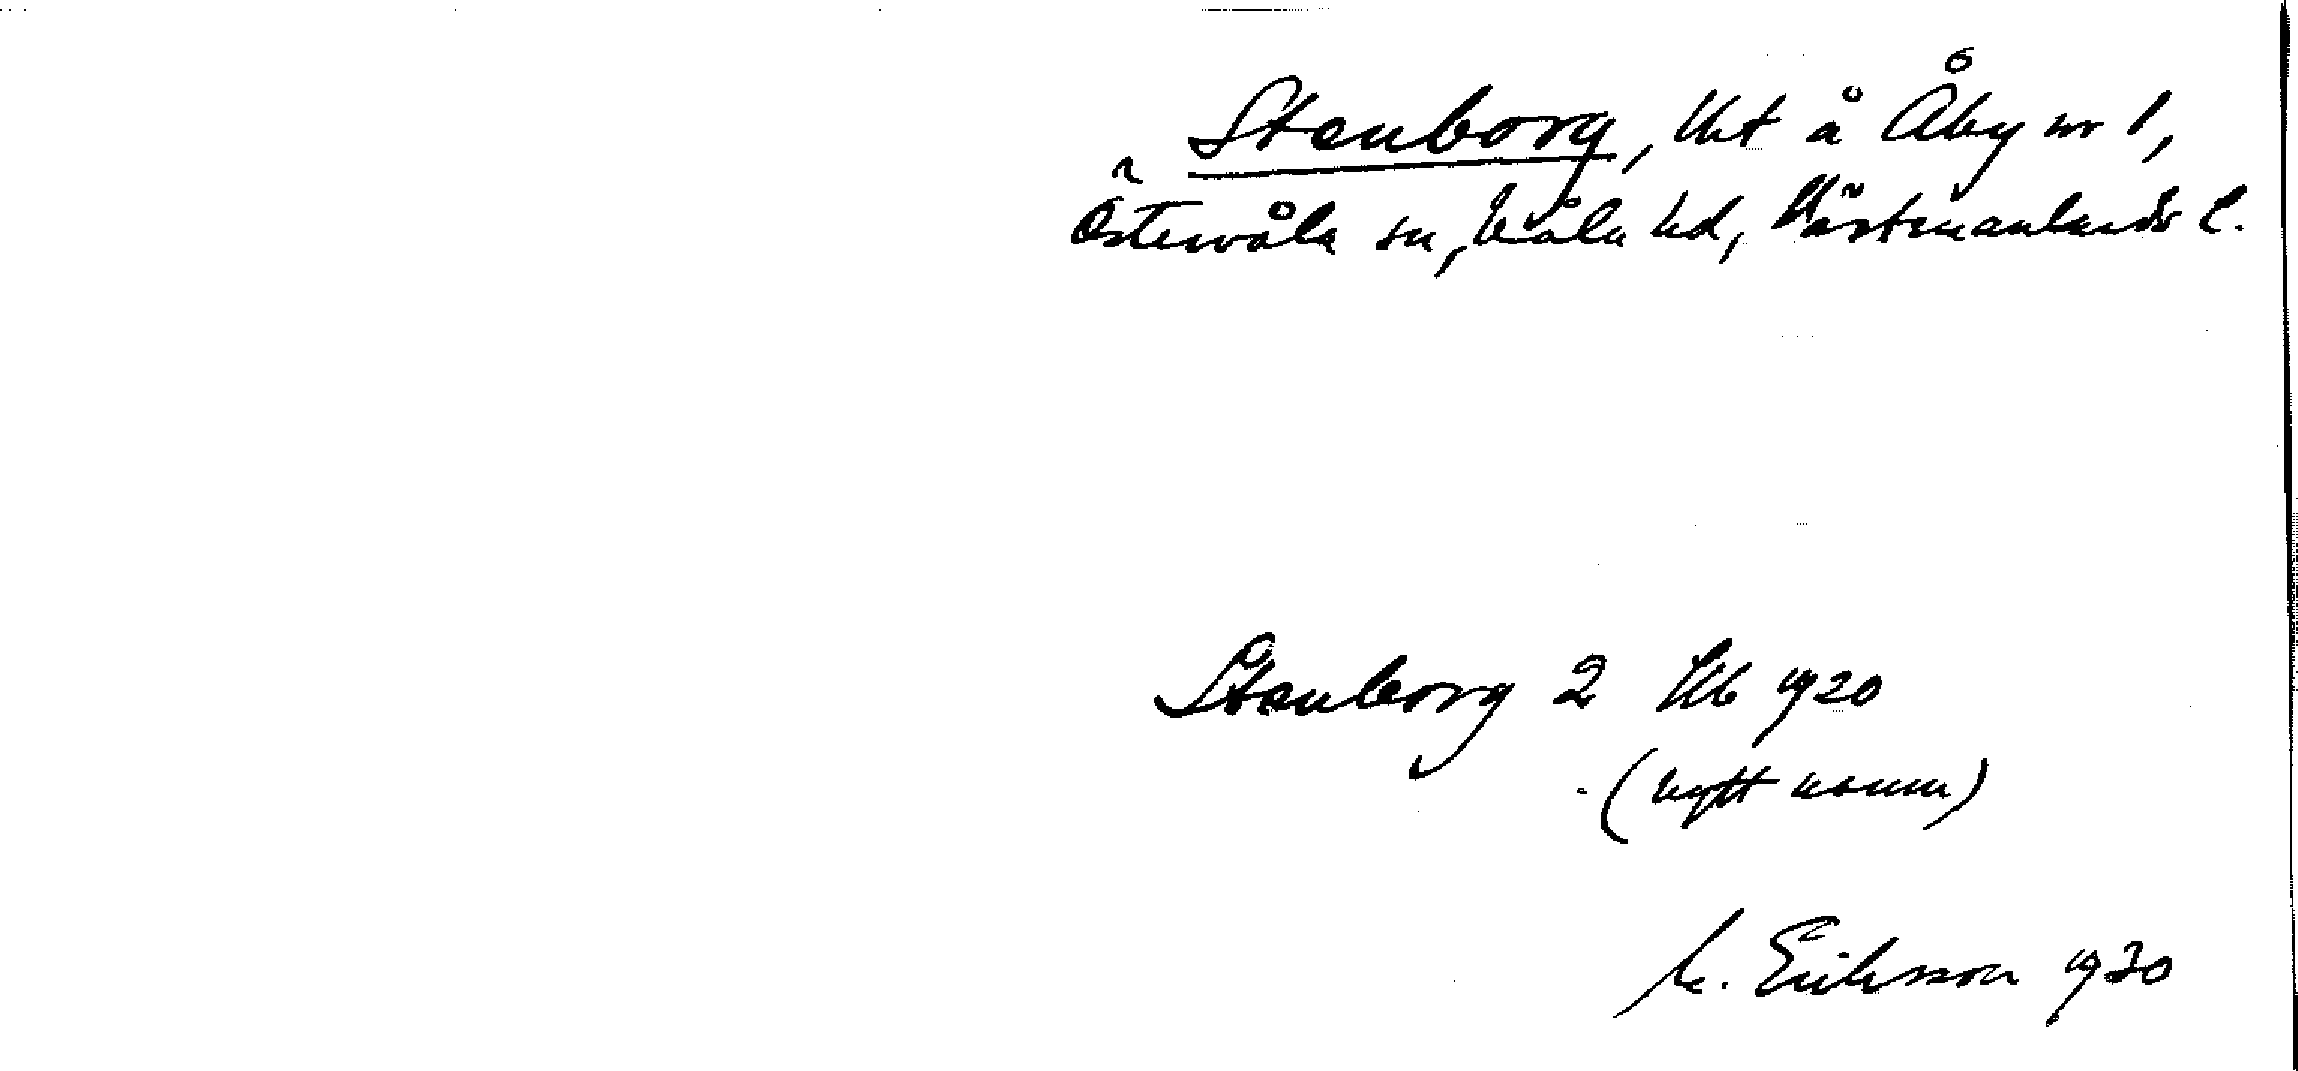 Stenborg, lht å Åby nr 1,
Östervåla sn, Våla hd, Västmanlands l.
Stenborg 2 Hb 1920
(nytt namn)
M. Eriksson 1930